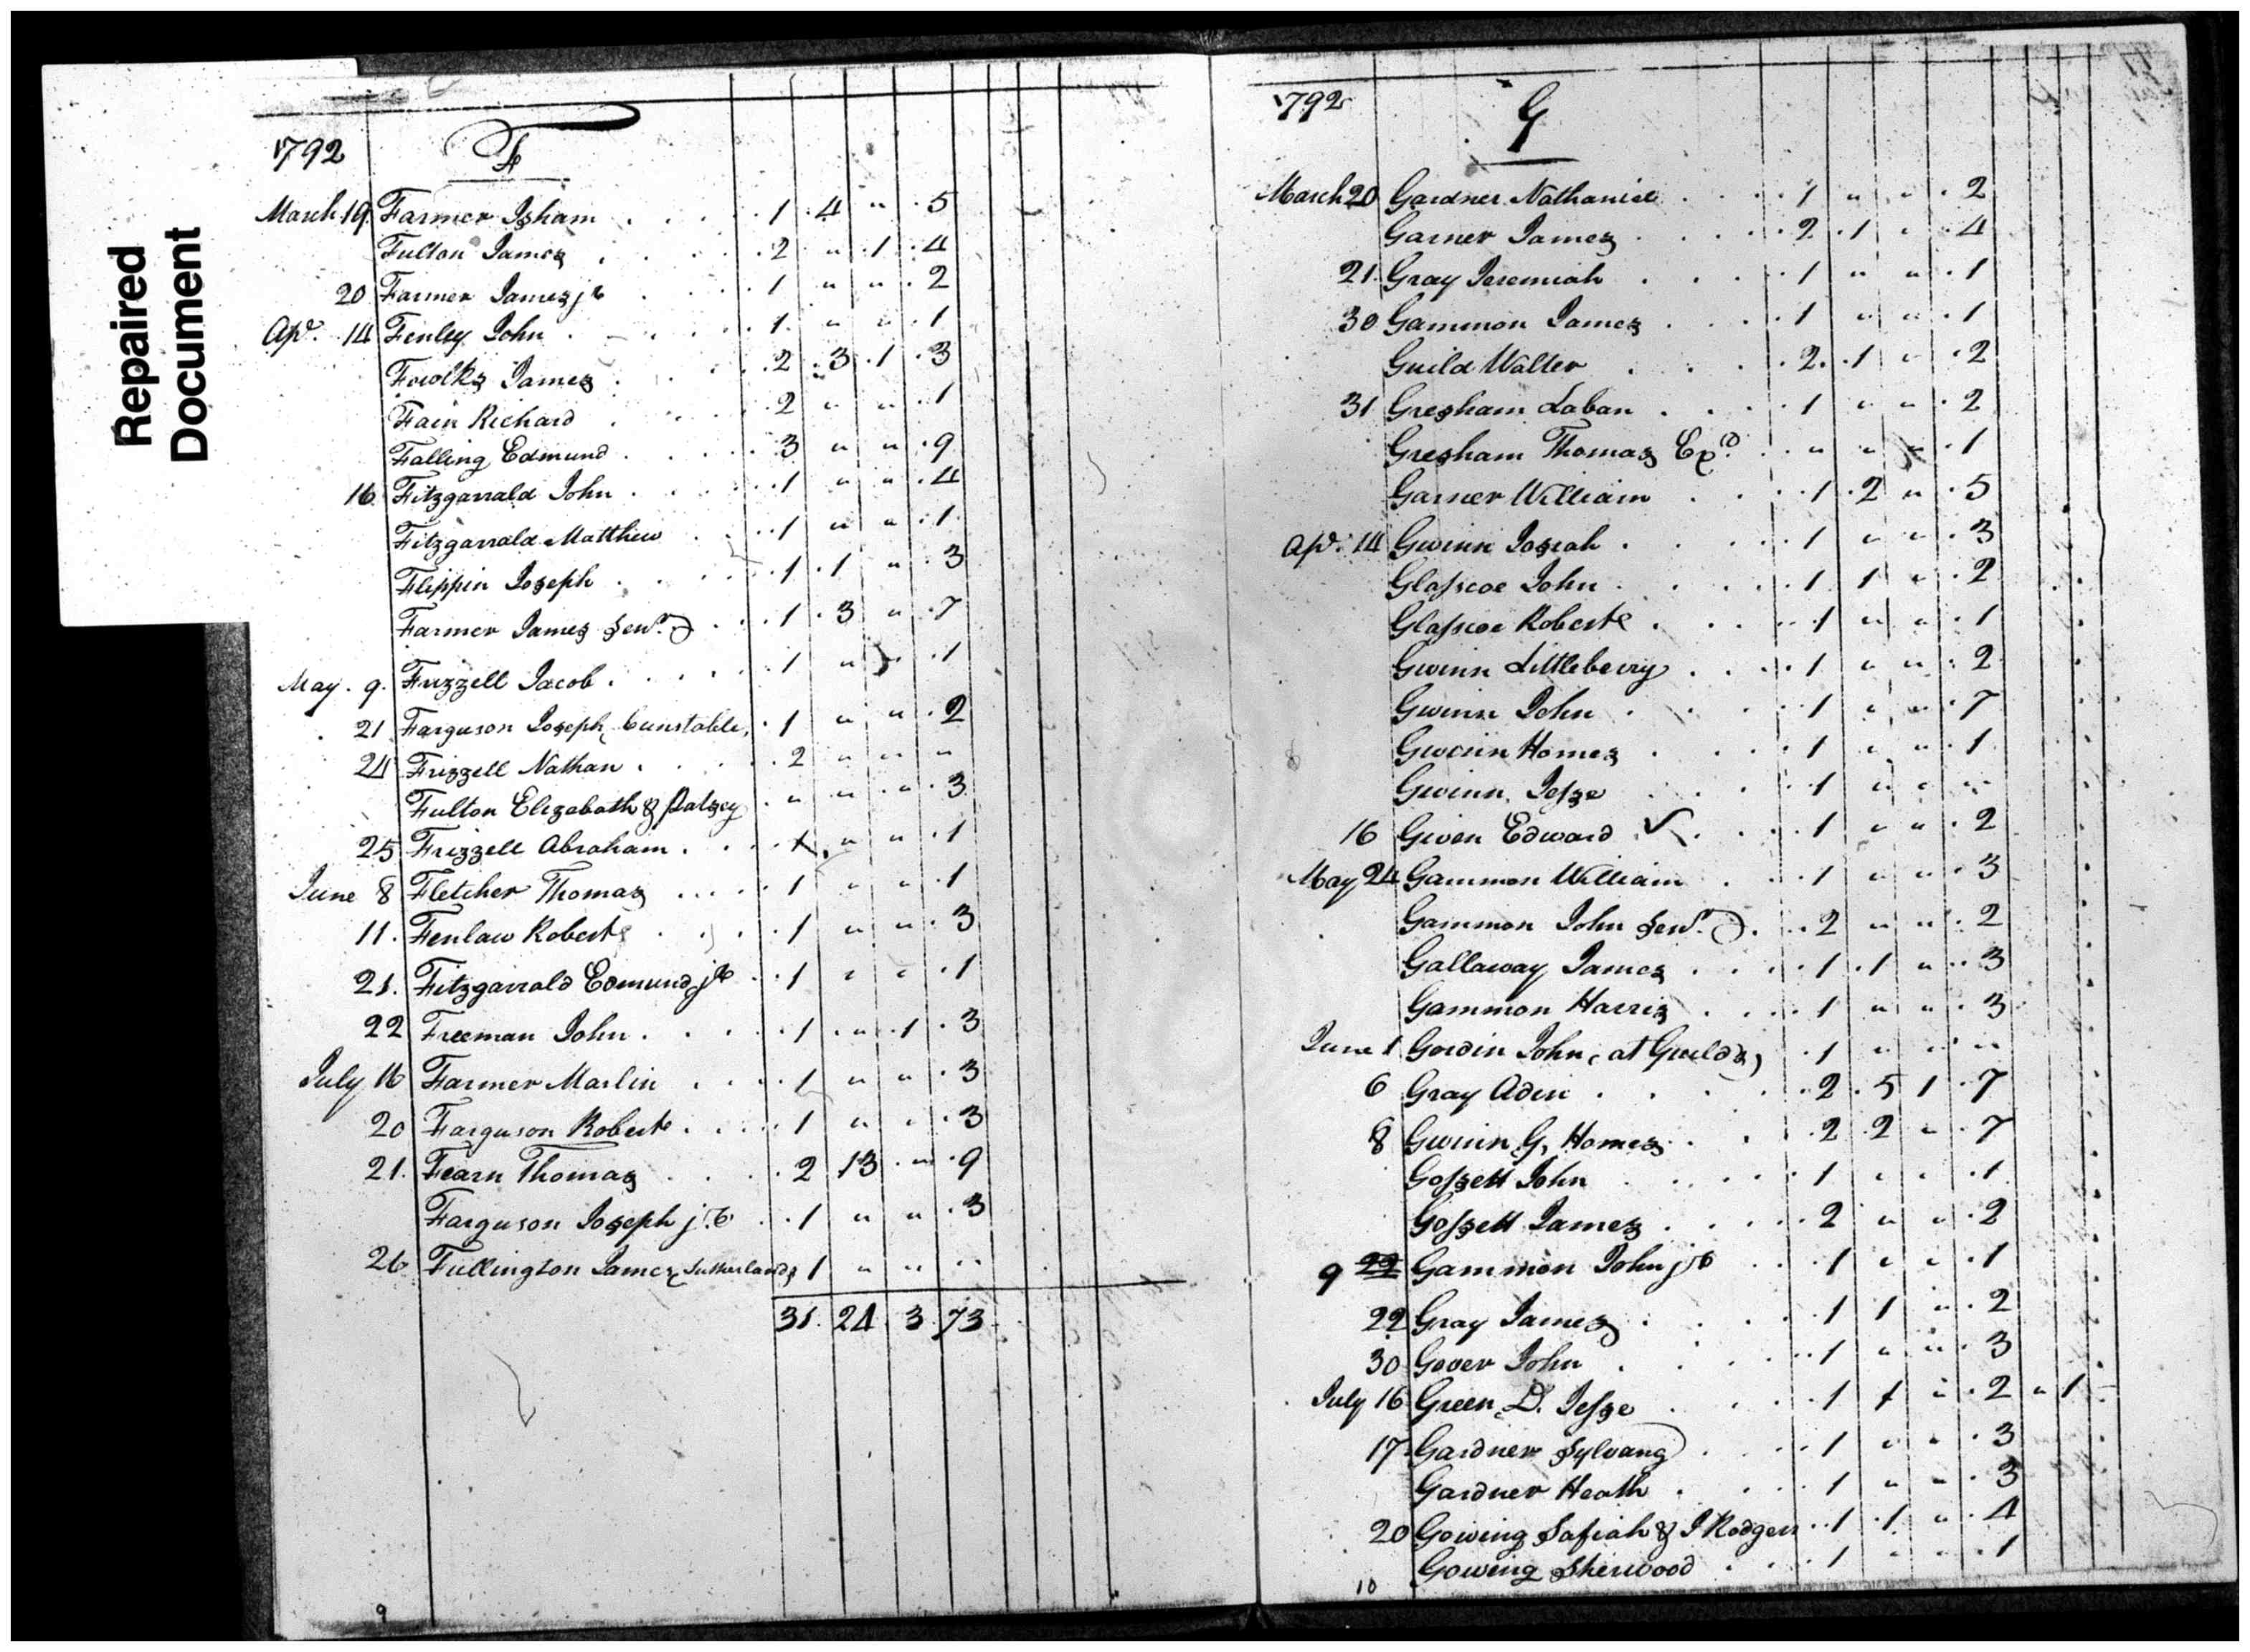 Repaired
Document
1792 F
March 19. Farmer Isham 1 4 " 5
Fulton James 2 " 1 4
20 Farmer James jr 1 " " 2
Apl. 14 Fenley John 1 " " 1
Fowlks James 2 3 1 3
Fain Richard 2 " " 1
Falling Edmund 3 " " 9
16 Fitzgarrald John 1 " " 4
Fitzgarrald Matthew 1 " " 1
Flippin Joseph 1 1 " 3
Farmer James Senr. 1 3 " 7
May 9. Frizzell Jacob 1 " " 1
21 Farguson Joseph, Cunstable, 1 " " 2
24 Frizzell Nathan 2 " " "
Fulton Elizabath & Patsey " " " 3
25 Frizzell Abraham 1 " " 1
June 8 Fletcher Thomas 1 " " 1
11. Fenlaw Robert 1 " " 3
21. Fitzgarrald Edmund jr 1 " " 1
22 Freeman John 1 " 1 3
July 16 Farmer Marlin 1 " " 3
20 Farguson Robert 1 " " 3
21. Fearn Thomas 2 13 " 9
Farguson Joseph jr. 1 " " 3
26 Fullington James (Sutherlands 1 " " "
31 24 3 73
9
1792 G
March 20 Gardner Nathaniel 1 " " 2
Garner James 2 1 " 4
21. Gray Jeremiah 1 " " 1
30 Gammon James 1 " " 1
Guild Walter 2 1 " 2
31 Gresham Laban 1 " " 2
Gresham Thomas Exd. " " " 1
Garner William 1 2 " 5
Apl. 14 Gwinn Josiah 1 " " 3
Glasscoe John 1 1 " 2
Glasscoe Robert 1 " " 1
Gwinn Littleberry 1 " " 2
Gwinn John 1 " " 7
Gwinn Homes 1 " " 1
Gwinn Jesse 1 " " "
16 Given Edward 1 " " 2
May 24 Gammon William 1 " " 3
Gammon John Senr. 2 " " 2
Gallaway James 1 1 " 3
Gammon Harris 1 " " 3
June 1 Gordin John, at Guilds) 1 " " "
6 Gray Aden 2 5 1 7
8 Gwinn G. Homes 2 2 " 7
Gossett John 1 " " 1
Gossett James 2 " " 2
9 22 Gammon John jr 1 " " 1
22 Gray James 1 1 " 2
30 Gover John 1 " " 3
July 16 Green D. Jesse 1 1 " 2 " 1
17 Gardner Sylvang 1 " " 3
Gardner Heath 1 " " 3
20 Gowing Safiah & J Rodgers 1 1 " 4
Gowing Sherwood 1 " " 1
10